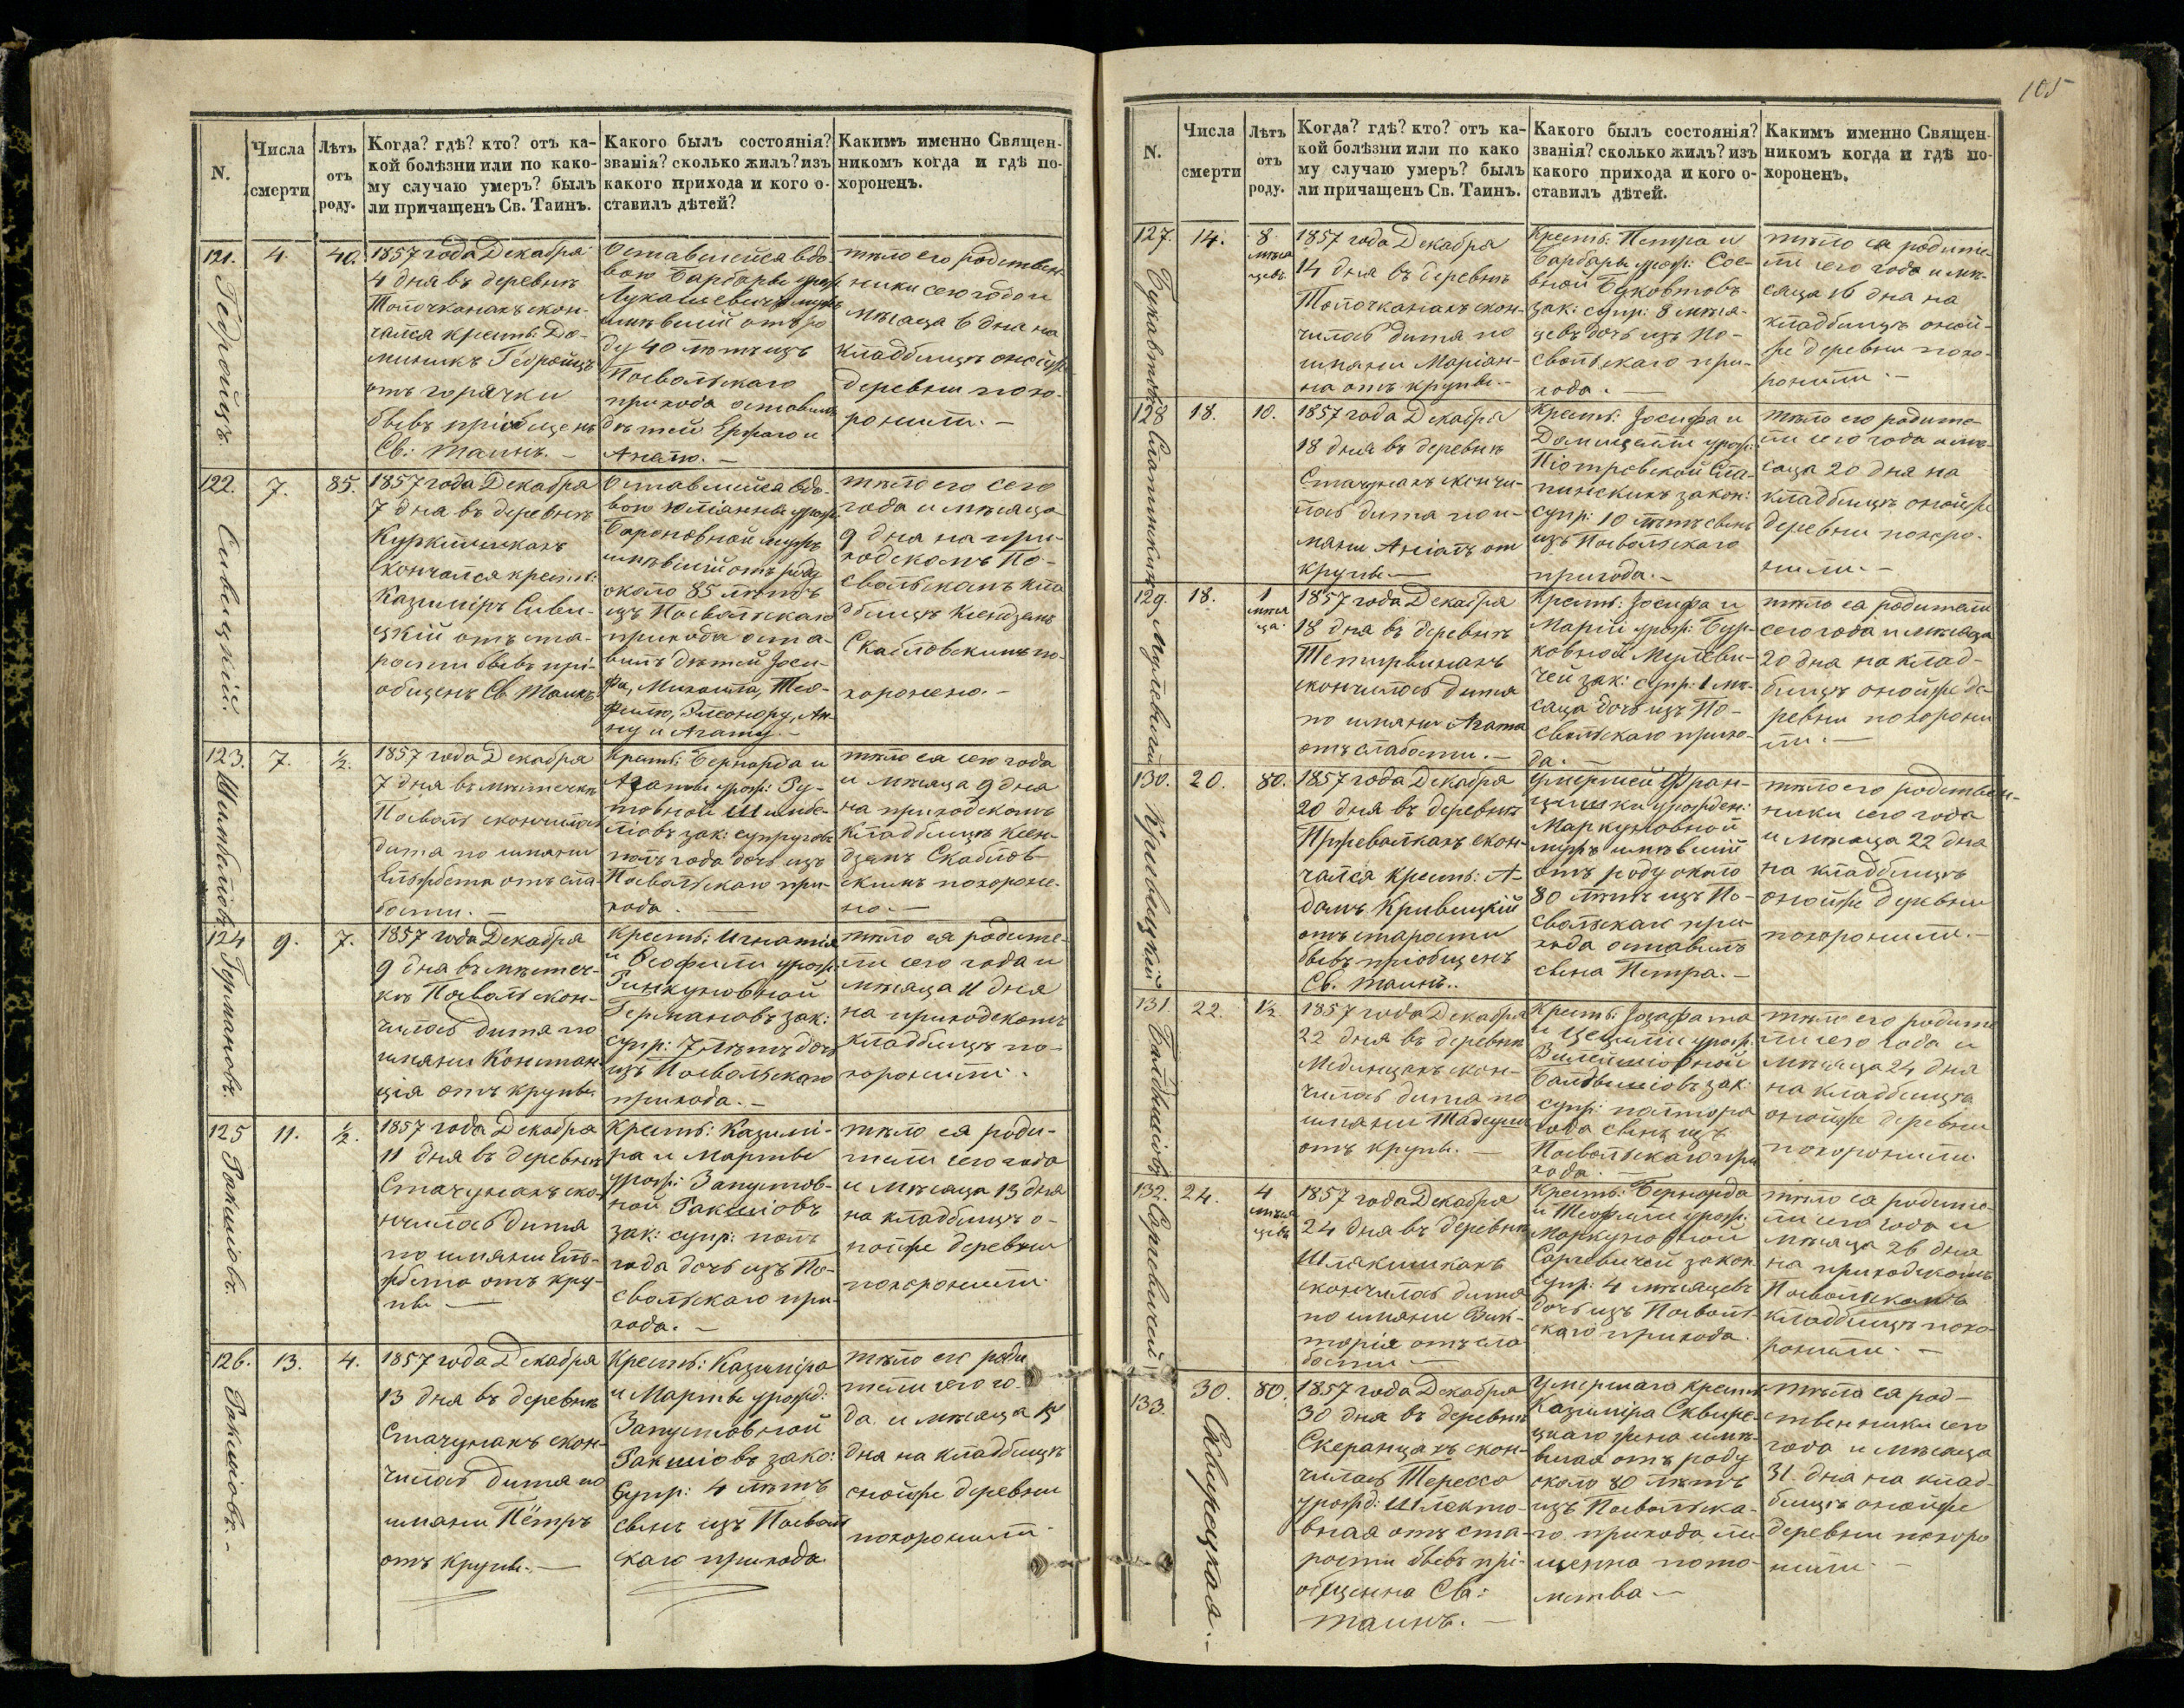 105
N.
Числа
смерти
Лѣтъ
отъ
роду.
Когда? гдѣ? кто? отъ ка-
кой болѣзни или по како-
му случаю умеръ? былъ
ли причащенъ Св. Таинъ.
Какого былъ состоянія?
званія? сколько жилъ? изъ
какого прихода и кого о-
ставилъ дѣтей?
Какимъ именно Священ-
никомъ когда и гдѣ по-
хороненъ.
121.
Гедройцъ
4.
40.
1857 года Декабря
4 дня въ деревнѣ
скон-
чался крест: До-
миникъ Гедройцъ
отъ горячки
бывъ пріобщенъ
Св: Таинъ. –
Оставшейся вдо-
вою Барбары урож
имѣвшій отъ ро
ду 40 лѣтъ изъ
Посвольскаго
прихода оставилъ
дѣтей и
тѣло его родствен
ники сего года и
мѣсяца 6 дня на
кладбищѣ онойже
деревни похо-
ронили. –
122.
Сивицкій.
7.
85.
1857 года Декабря
7 дня въ деревнѣ
скончался крест:
Казиміръ Сиви-
цкій отъ ста-
рости бывъ прі-
общенъ Св Таинъ
Оставшейся вдо-
вою Юліанны урож:
Бароновной мужъ
имѣвшій отъ роду
около 85 лѣтъ
изъ Посвольскаго
прихода оста-
вилъ дѣтей Іоси-
фа, Михаила, Тео-
филю, Элеонору, Ан-
ну и Агату. –
тѣло его сего
года и мѣсяца
9 дня на при-
ходскомъ По-
свольскомъ кла
дбищѣ Ксендзомъ
по-
хоронено. –
123.
Шимбелёвъ
7.
½.
1857 года Декабря
7 дня въ мѣстечкѣ
Посволѣ скончилась
дитя по имяни
Ельжбета отъ сла-
бости. –
Крест: Бернарда и
Агаты урож: Гу-
товной
зак: супруговъ
полъ года дочь изъ
Посвольскаго при-
хода. –
тѣло ея сего года
и мѣсяца 9 дня
на приходскомъ
кладбищѣ Ксен-
дзомъ
похороне-
но. –
124
Германовъ.
9.
7.
1857 года Декабря
9 дня въ мѣстеч-
кѣ Посволѣ скон-
чилась дитя по
имяни Констан-
ція отъ крупы.
Крест: Игнатія
и Теофили урож:
Гинкуновной
Германовъ зак:
супр: 7 лѣтъ дочь
изъ Посвольскаго
прихода. –
тѣло ея родите-
ли сего года и
мѣсяца 11 дня
на приходскомъ
кладбищѣ по-
хоронили.
125
Ракшіовъ.
11.
½.
1857 года Декабря
11 дня въ деревнѣ
Стачунахъ ско-
нчилась дитя
по имяни Ель-
жбета отъ кру-
пы –
Крест: Казимі-
ра и Марты
урож: Запустов-
ной Ракшіовъ
зак: супр: полъ
года дочь изъ По-
свольскаго при-
хода. –
тѣло ея роди-
тели сего года
и мѣсяца 13 дня
на кладбищѣ о-
нойже деревни
похоронили.
126.
Ракшіовъ. –
13.
4.
1857 года Декабря
13 дня въ деревнѣ
Стачунахъ скон-
чилась дитя по
имяни Пётръ
отъ крупы. –
Крест: Казиміра
и Марты урожд:
Запустовной
Ракшіовъ зако:
супр: 4 лѣтъ
сынъ изъ Посволь
скаго прихода.
тѣло его роди
тели сего го-
да и мѣсяца 15
дня на кладбищѣ
онойже деревни
похоронили.
N.
Числа
смерти
Лѣтъ
отъ
роду.
Когда? гдѣ? кто? отъ ка-
кой болѣзни или по како
му случаю умеръ? былъ
ли причащенъ Св. Таинъ.
Какого былъ состоянія?
званія? сколько жилъ? изъ
какого прихода и кого о-
ставилъ дѣтей.
Какимъ именно Священ-
никомъ когда и гдѣ по-
хороненъ.
127.
14.
8
мѣся
цевъ
1857 года Декабря
14 дня въ деревнѣ
скон-
чилась дитя по
имяни Маріан-
на отъ крупы. –
Крест: Петра и
Барбары урож:
зак: супр: 8 мѣся-
цевъ дочь изъ По-
свольскаго при-
хода. –
тѣло ея родите-
ли сего года и мѣ-
сяца 16 дня на
кладбищѣ оной-
же деревни похо-
ронили. –
128
18.
10.
1857 года Декабря
18 дня въ деревнѣ
Стачунахъ скончи-
лась дитя по и-
мяни отъ
крупы –
Крест: Іосифа и
Доминцели урож:
Піотровской
закон:
супр: 10 лѣтъ сынъ
изъ Посвольскаго
прихода. –
тѣло его родите-
ли сего года и мѣ-
сяца 20 дня на
кладбищѣ онойже
деревни похоро-
нили. –
129.
18.
1
мѣся
ца.
1857 года Декабря
18 дня въ деревнѣ
скончилась дитя
по имяни Агата
отъ слабости. –
Крест: Іосифа и
Маріи урож: Бур-
ковной
зак: супр: 1 мѣ-
сяца дочь изъ По-
свольскаго прихо-
да. –
тѣло ея родители
сего года и мѣсяца
20 дня на клад-
бищѣ онойже де-
ревни похорони
ли. –
130.
Кривицкій
20.
80.
1857 года Декабря
20 дня въ деревнѣ
скон-
чался крест: А-
дамъ Кривицкій
отъ старости
бывъ пріобщенъ
Св. Таинъ..
умершей Фран-
цишки урожден:
Маркуновной
мужъ имѣвшій
отъ роду около
80 лѣтъ изъ По-
свольскаго при-
хода оставилъ
сына Петра. –
тѣло его родствен-
ники сего года
и мѣсяца 22 дня
на кладбищѣ
онойже деревни
похоронили. –
131.
22.
1½
1857 года Декабря
22 дня въ деревнѣ
скон-
чилась дитя по
имяни Тадеушъ
отъ крупы. –
Крест: Іозафата
и Цециліи урож:
зак:
супр: полтора
года сынъ изъ
Посвольскаго при
хода. –
тѣло его родите
ли сего года и
мѣсяца 24 дня
на кладбищѣ
онойже деревни
похоронили.
132.
Саргевичей
24.
4
мѣся
цевъ
1857 года Декабря
24 дня въ деревнѣ
Шлякишкахъ
скончилась дитя
по имяни Вик-
торія отъ сла
бости –
Крест: Бернарда
и Теофили урож:
Маркуновной
Саргевичей закон
супр: 4 мѣсяцевъ
дочь изъ Посволь-
скаго прихода.
тѣло ея родите-
ли сего года и
мѣсяца 26 дня
на приходскомъ
Посвольскомъ
кладбищѣ похо-
ронили. –
133.
Сквирецкая. –
30.
80.
1857 года Декабря
30 дня въ деревнѣ
скон-
чилась Тересса
урожд: Шлякто-
вная отъ ста-
рости бывъ прі-
общенна Св:
Таинъ. –
умершаго крест:
Казиміра Сквире-
цкаго жена имѣ-
вшая отъ роду
около 80 лѣтъ
изъ Посвольска-
го прихода ли-
шенна пото-
мства –
тѣло ея род-
ственники сего
года и мѣсяца
31 дня на клад-
бищѣ онойже
деревни похоро
нили. –